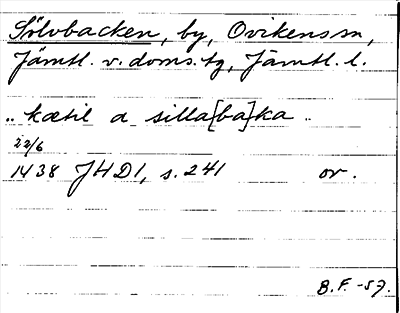 Sölvbacken, by, Ovikens sn,
Jämtl. v. doms. tg, Jämtl. l.
.. kætil a silla[ba]ka ..
22/6
1438 JHD1, s. 241 or.
B.F. -57.